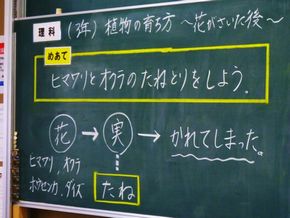 理科 (3年) 植物の育ち方 ～花がさいた後～
めあて
ヒマワリとオクラのたねとりをしよう。
花 → 実 → かれてしまった。
ヒマワリ、オクラ
ホウセンカ、ダイズ
たね